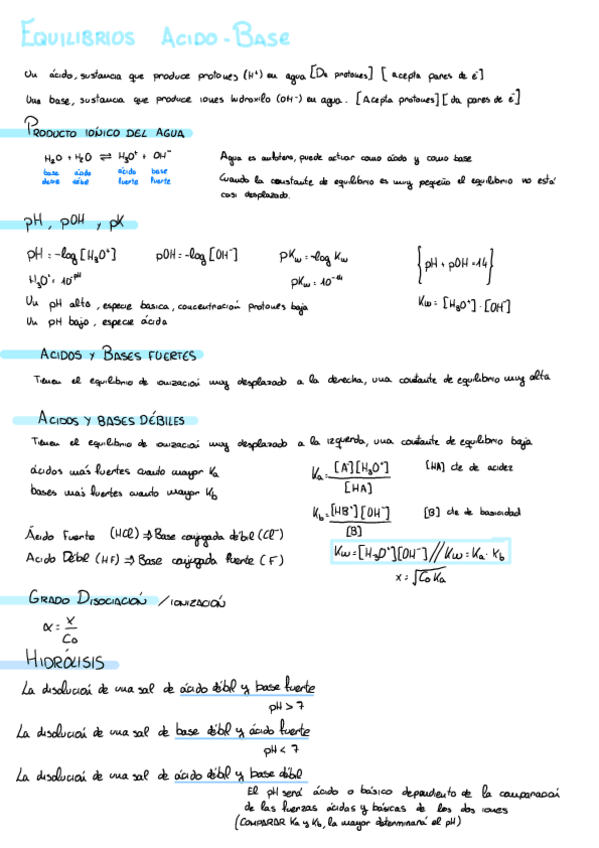 EQUILIBRIOS ACIDO-BASE
Un ácido, sustancia que produce protones (H⁺) en agua [Da protones] [acepta pares de e⁻]
Una base, sustancia que produce iones hidroxilo (OH⁻) en agua. [Acepta protones] [da pares de e⁻]
PRODUCTO IÓNICO DEL AGUA
H₂O + H₂O ⇌ H₃O⁺ + OH⁻
base ácido ácido base
débil débil fuerte fuerte
Agua es anfótera, puede actuar como ácido y como base
Cuando la constante de equilibrio es muy pequeña el equilibrio no está
casi desplazado.
pH, pOH, y pK
pH = -log [H₃O⁺] pOH = -log [OH⁻] pKw = -log Kw {pH + pOH = 14}
H₃O⁺ = 10^-pH pKw = 10^-14 Kw = [H₃O⁺]·[OH⁻]
Un pH alto, especie basica, concentración protones baja
Un pH bajo, especie ácida
ACIDOS Y BASES FUERTES
Tienen el equilibrio de ionización muy desplazado a la derecha, una constante de equilibrio muy alta
ACIDOS Y BASES DÉBILES
Tienen el equilibrio de ionización muy desplazado a la izquierda, una constante de equilibrio baja
ácidos más fuertes cuanto mayor Ka
bases más fuertes cuanto mayor Kb
Ka = [A⁻][H₃O⁺] / [HA] [HA] cte de acidez
Kb = [HB⁺][OH⁻] / [B] [B] cte de basicidad
Ácido Fuerte (HCl) ⇒ Base conjugada débil (Cl⁻)
Acido Débil (HF) ⇒ Base conjugada fuerte (F⁻)
Kw = [H₃O⁺][OH⁻] // Kw = Ka · Kb
x = √CoKa
GRADO DISOCIACIÓN / IONIZACIÓN
α = x / Co
HIDRÓLISIS
La disolución de una sal de ácido débil y base fuerte
pH > 7
La disolución de una sal de base débil y ácido fuerte
pH < 7
La disolución de una sal de ácido débil y base débil
El pH será ácido o básico dependiento de la comparación
de las fuerzas ácidas y básicas de los dos iones
(COMPARAR Ka y Kb, la mayor determinará el pH)